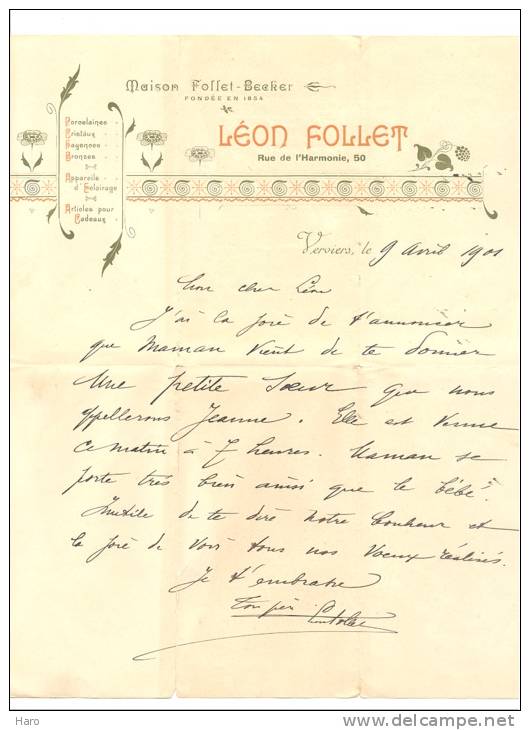 Maison Follet-Becker
FONDÉE EN 1854
LÉON FOLLET
Rue de l'Harmonie, 50
Porcelaines
Cristaux
Fayences
Bronzes
Appareils
d'Eclairage
Articles pour
Cadeaux
Verviers, le 9 avril 1901
Mon cher Léon
J'ai la joie de t'annoncer
que Maman vient de te donner
Une petite Sœur que nous
appellerons Jeanne. Elle est venue
ce matin à 7 heures. Maman se
porte très bien ainsi que le bébé.
Inutile de te dire notre bonheur et
la joie de voir tous nos vœux réalisés.
Je t'embrasse
Ton père
Haro
www.delcampe.net